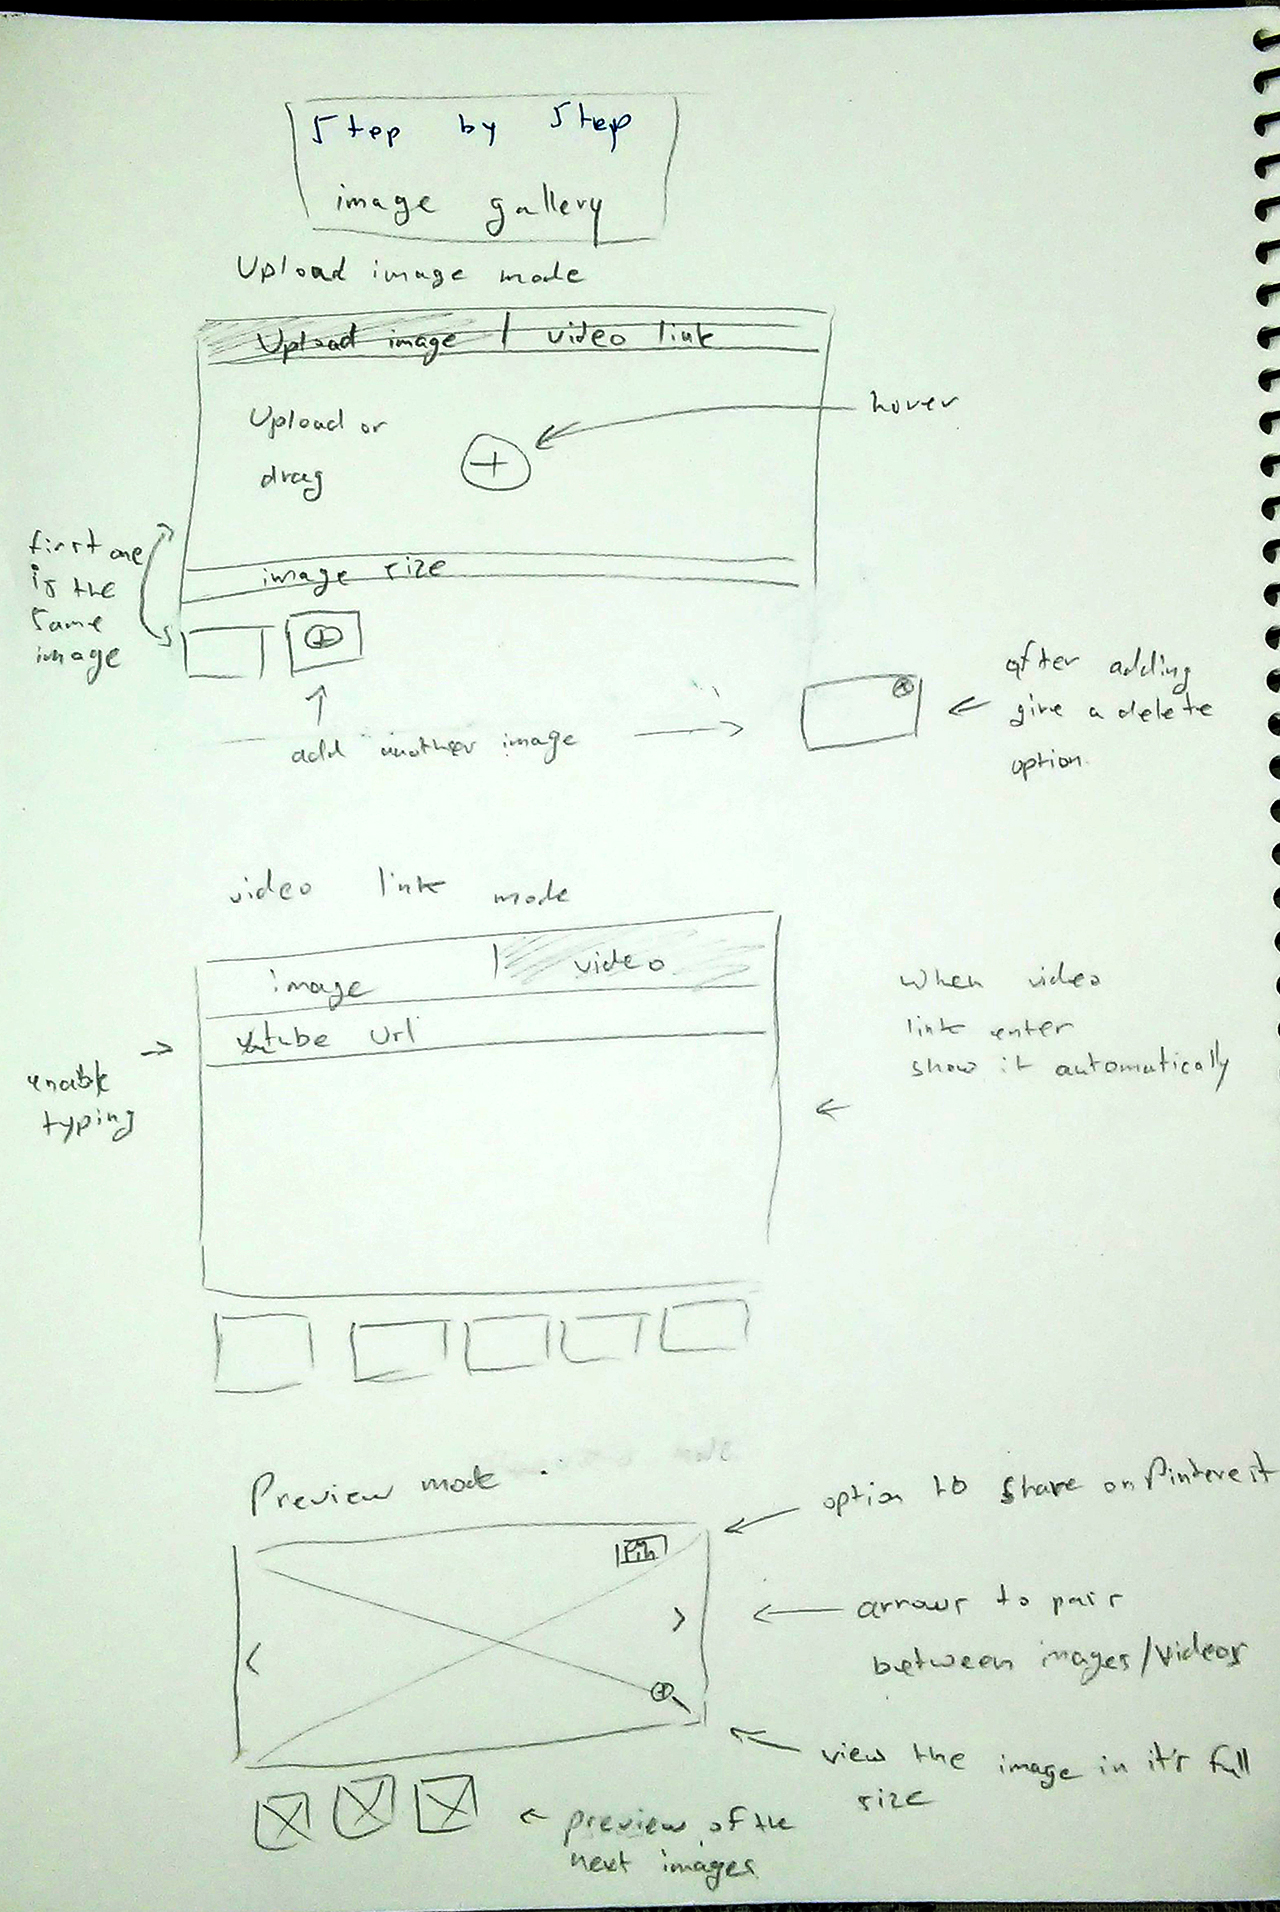 Step by Step
image gallery
Upload image mode
Upload image | video link
Upload or
drag
hover
image size
first one
is the
same
image
add another image
after adding
give a delete
option
video link mode
image | video
youtube url
enable
typing
when video
link enter
show it automatically
Preview mode
Pin
option to share on Pinterest
arrows to pair
between images/videos
view the image in it's full
size
preview of the
next images